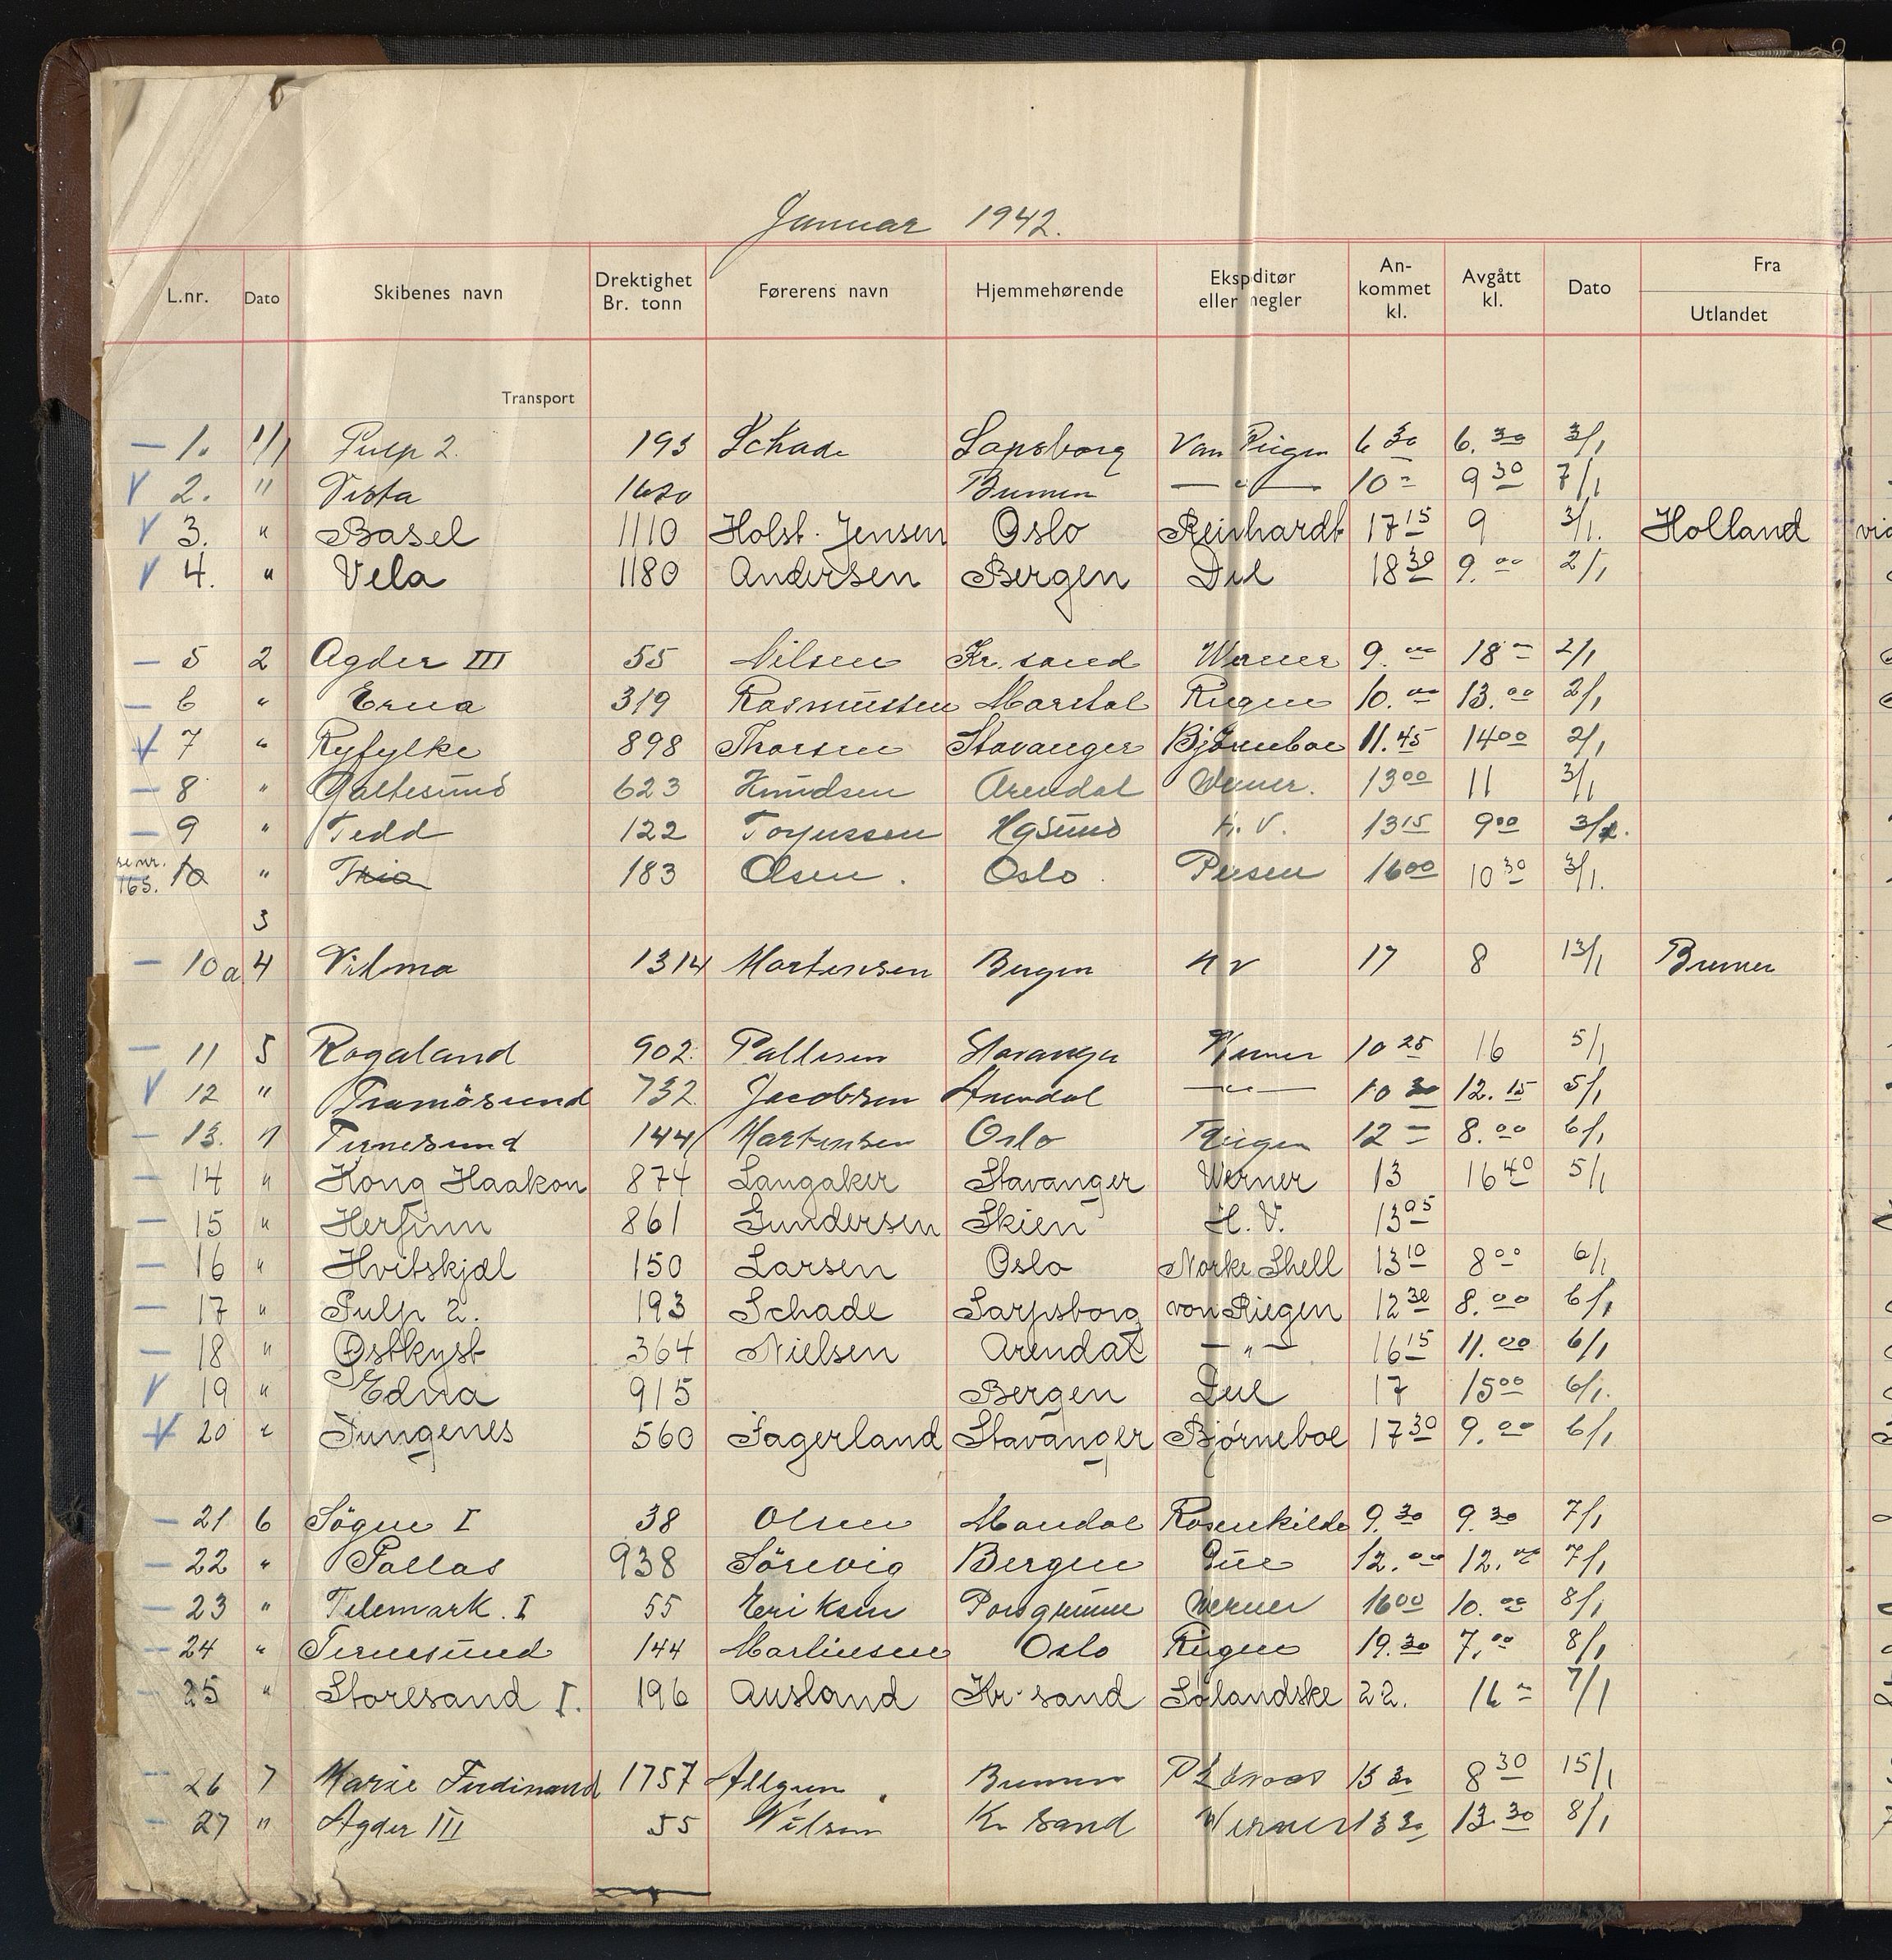 Januar 1942.
L.nr. Dato Skibenes navn Drektighet Br. tonn Førerens navn Hjemmehørende Ekspeditør eller megler Ankommet kl. Avgått kl. Dato Fra Utlandet
Transport
— 1. 1/1 Pulp 2. 193 Schade Sapsborg Van Riegen 6 30 6. 30 3/1
V 2. " Vista 1620 Bremen —"— 10 - 9 30 7/1
V 3. " Basel 1110 Holst-Jensen Oslo Reinhardt 17 15 9 3/1. Holland
V 4. " Vela 1180 Andersen Bergen Due 18 30 9. 00 2/1
— 5 2 Agder III 55 Nilsen Kr. sand Werner 9. 00 18 - 2/1
— 6 " Erna 319 Rasmussen Marstal Riegen 10. 00 13. 00 2/1
V 7 " Ryfylke 898 Thorsen Stavanger Bjørneboe 11. 45 14 00 2/1
— 8 " Galtesund 623 Knudsen Arendal Werner. 13 00 11 3/1
— 9 " Tedd 122 Torjussen Hgsund H. V. 13 15 9 00 3/1.
se nr. 165. 10 " Trio 183 Olsen. Oslo. Persen 16 00 10 30 3/1.
3
— 10a 4 Vilma 1314 Martensen Bergen H V 17 8 13/1 Bremen
— 11 5 Rogaland 902. Pallesen Stavanger Werner 10 25 16 5/1
V 12 " Tromösund 732 Jacobsen Arendal —"— 10 30 12. 15 5/1
— 13. " Ternesund 144 Martinsen Oslo Riegen 12 - 8. 00 6/1
— 14 " Kong Haakon 874 Langaker Stavanger Werner 13 16 40 5/1
— 15 " Herfinn 861 Gundersen Skien H. V. 13 05
— 16 " Hvitskjæl 150 Larsen Oslo Norke Shell 13 10 8 00 6/1
— 17 " Pulp 2. 193 Schade Sarpsborg von Riegen 12 30 8. 00 6/1
— 18 " Østkyst 364 Nielsen Arendal —"— 16 15 11. 00 6/1
V 19 " Edna 915 Bergen Due 17 15 00 6/1.
V 20 " Tungenes 560 Fagerland Stavanger Bjørneboe 17 30 9. 00 6/1
— 21 6 Sögne I 38 Olsen Mandal Rosenkilde 9. 30 9. 30 7/1
— 22 " Pallas 938 Sörevig Bergen Due 12. 00 12. 00 7/1
— 23 " Telemark. I 55 Eriksen Porsgrunn Werner 16 00 10. 00 8/1
— 24 " Ternesund 144 Martinsen Oslo Riegen 19. 30 7. 00 8/1
— 25 " Storesand I. 196 Ausland Kr. sand Sølandske 22. 16 - 7/1
— 26 7 Marie Ferdinand 1757 Bremen 15 30 8 30 15/1
27 " Agder III 55 Nilsen Kr sand Werner 13 30 13. 30 8/1